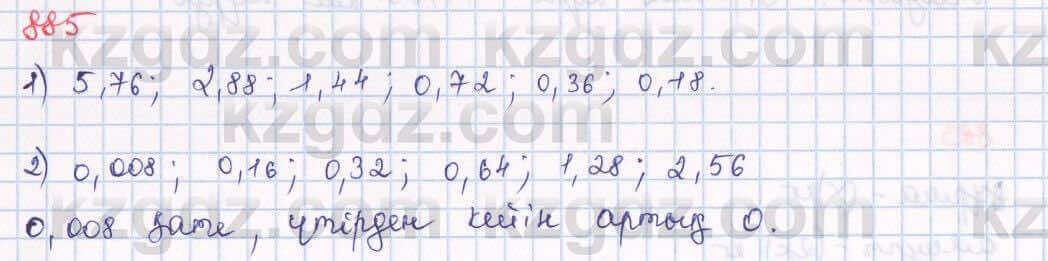 885
1) 5,76; 2,88; 1,44; 0,72; 0,36; 0,18.
2) 0,008; 0,16; 0,32; 0,64; 1,28; 2,56
0,008 қате, үтірден кейін артық 0.
kzgdz.com
kzgdz.com
kzgdz.com